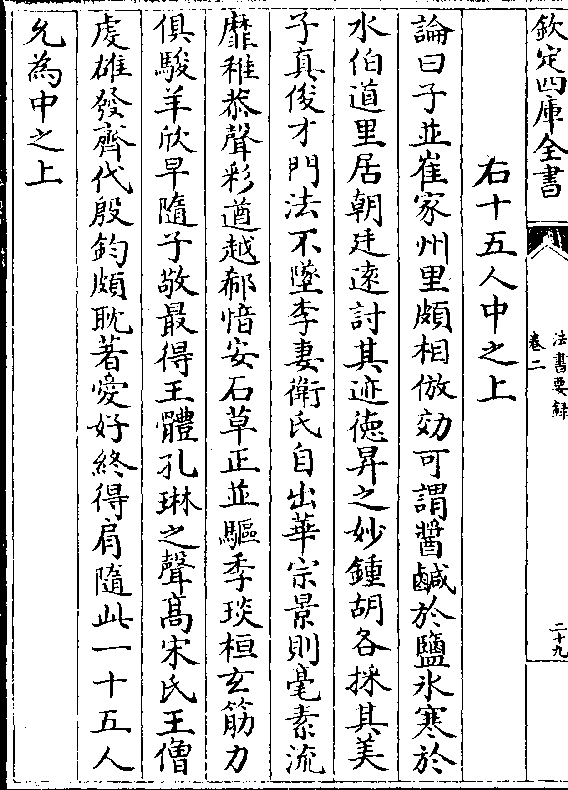 欽定四庫全書
法書要録
卷二
二十九
右十五人中之上
論曰子並崔家州里頗相倣効可謂醬鹹於鹽氷寒於
水伯道里居朝廷逺討其迹徳昇之妙鍾胡各採其美
子真俊才門法不墜李妻衛氏自出華宗景則毫素流
靡稚恭聲彩遒越郗愔安石草正並驅季琰桓玄筋力
俱駿羊欣早隨子敬最得王體孔琳之聲髙宋氏王僧
䖍雄發齊代殷鈞頗耽著愛好終得肩隨此一十五人
允為中之上